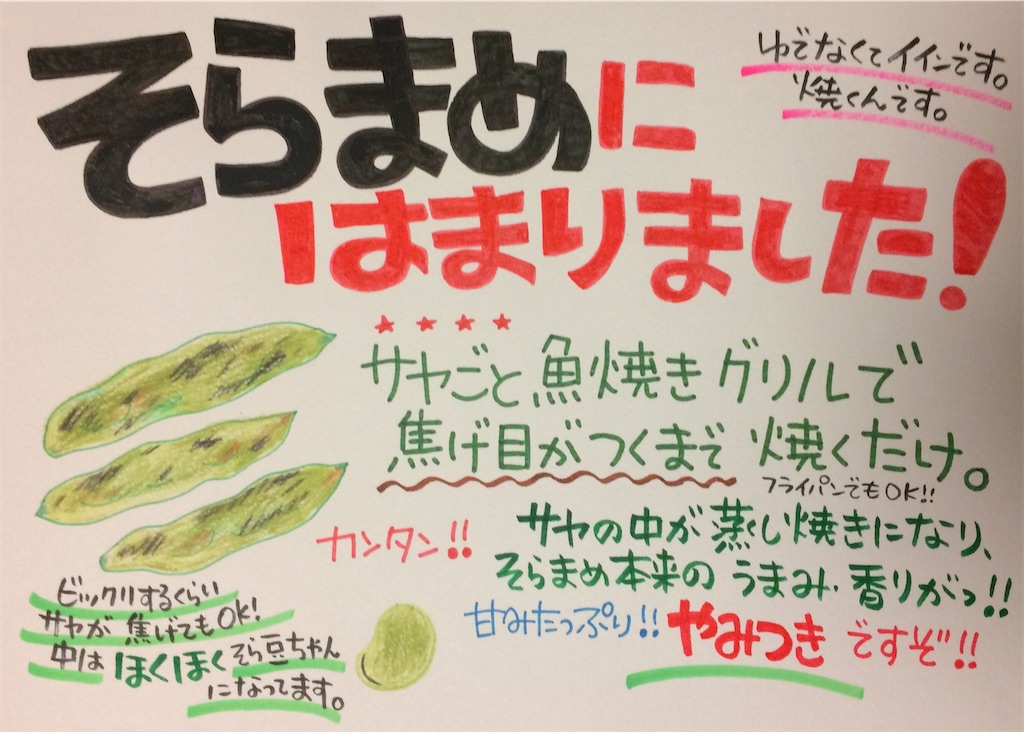 そらまめに
はまりました!
ゆでなくてイインです。
焼くんです。
サヤごと魚焼きグリルで
焦げ目がつくまで 焼くだけ。
フライパンでもOK!!
カンタン!!
サヤの中が蒸し焼きになり、
そらまめ本来の うまみ・香りがっ!!
甘みたっぷり!! やみつき ですぞ!!
ビックリするくらい
サヤが 焦げてもOK!
中は ほくほく そら豆ちゃん
になってます。